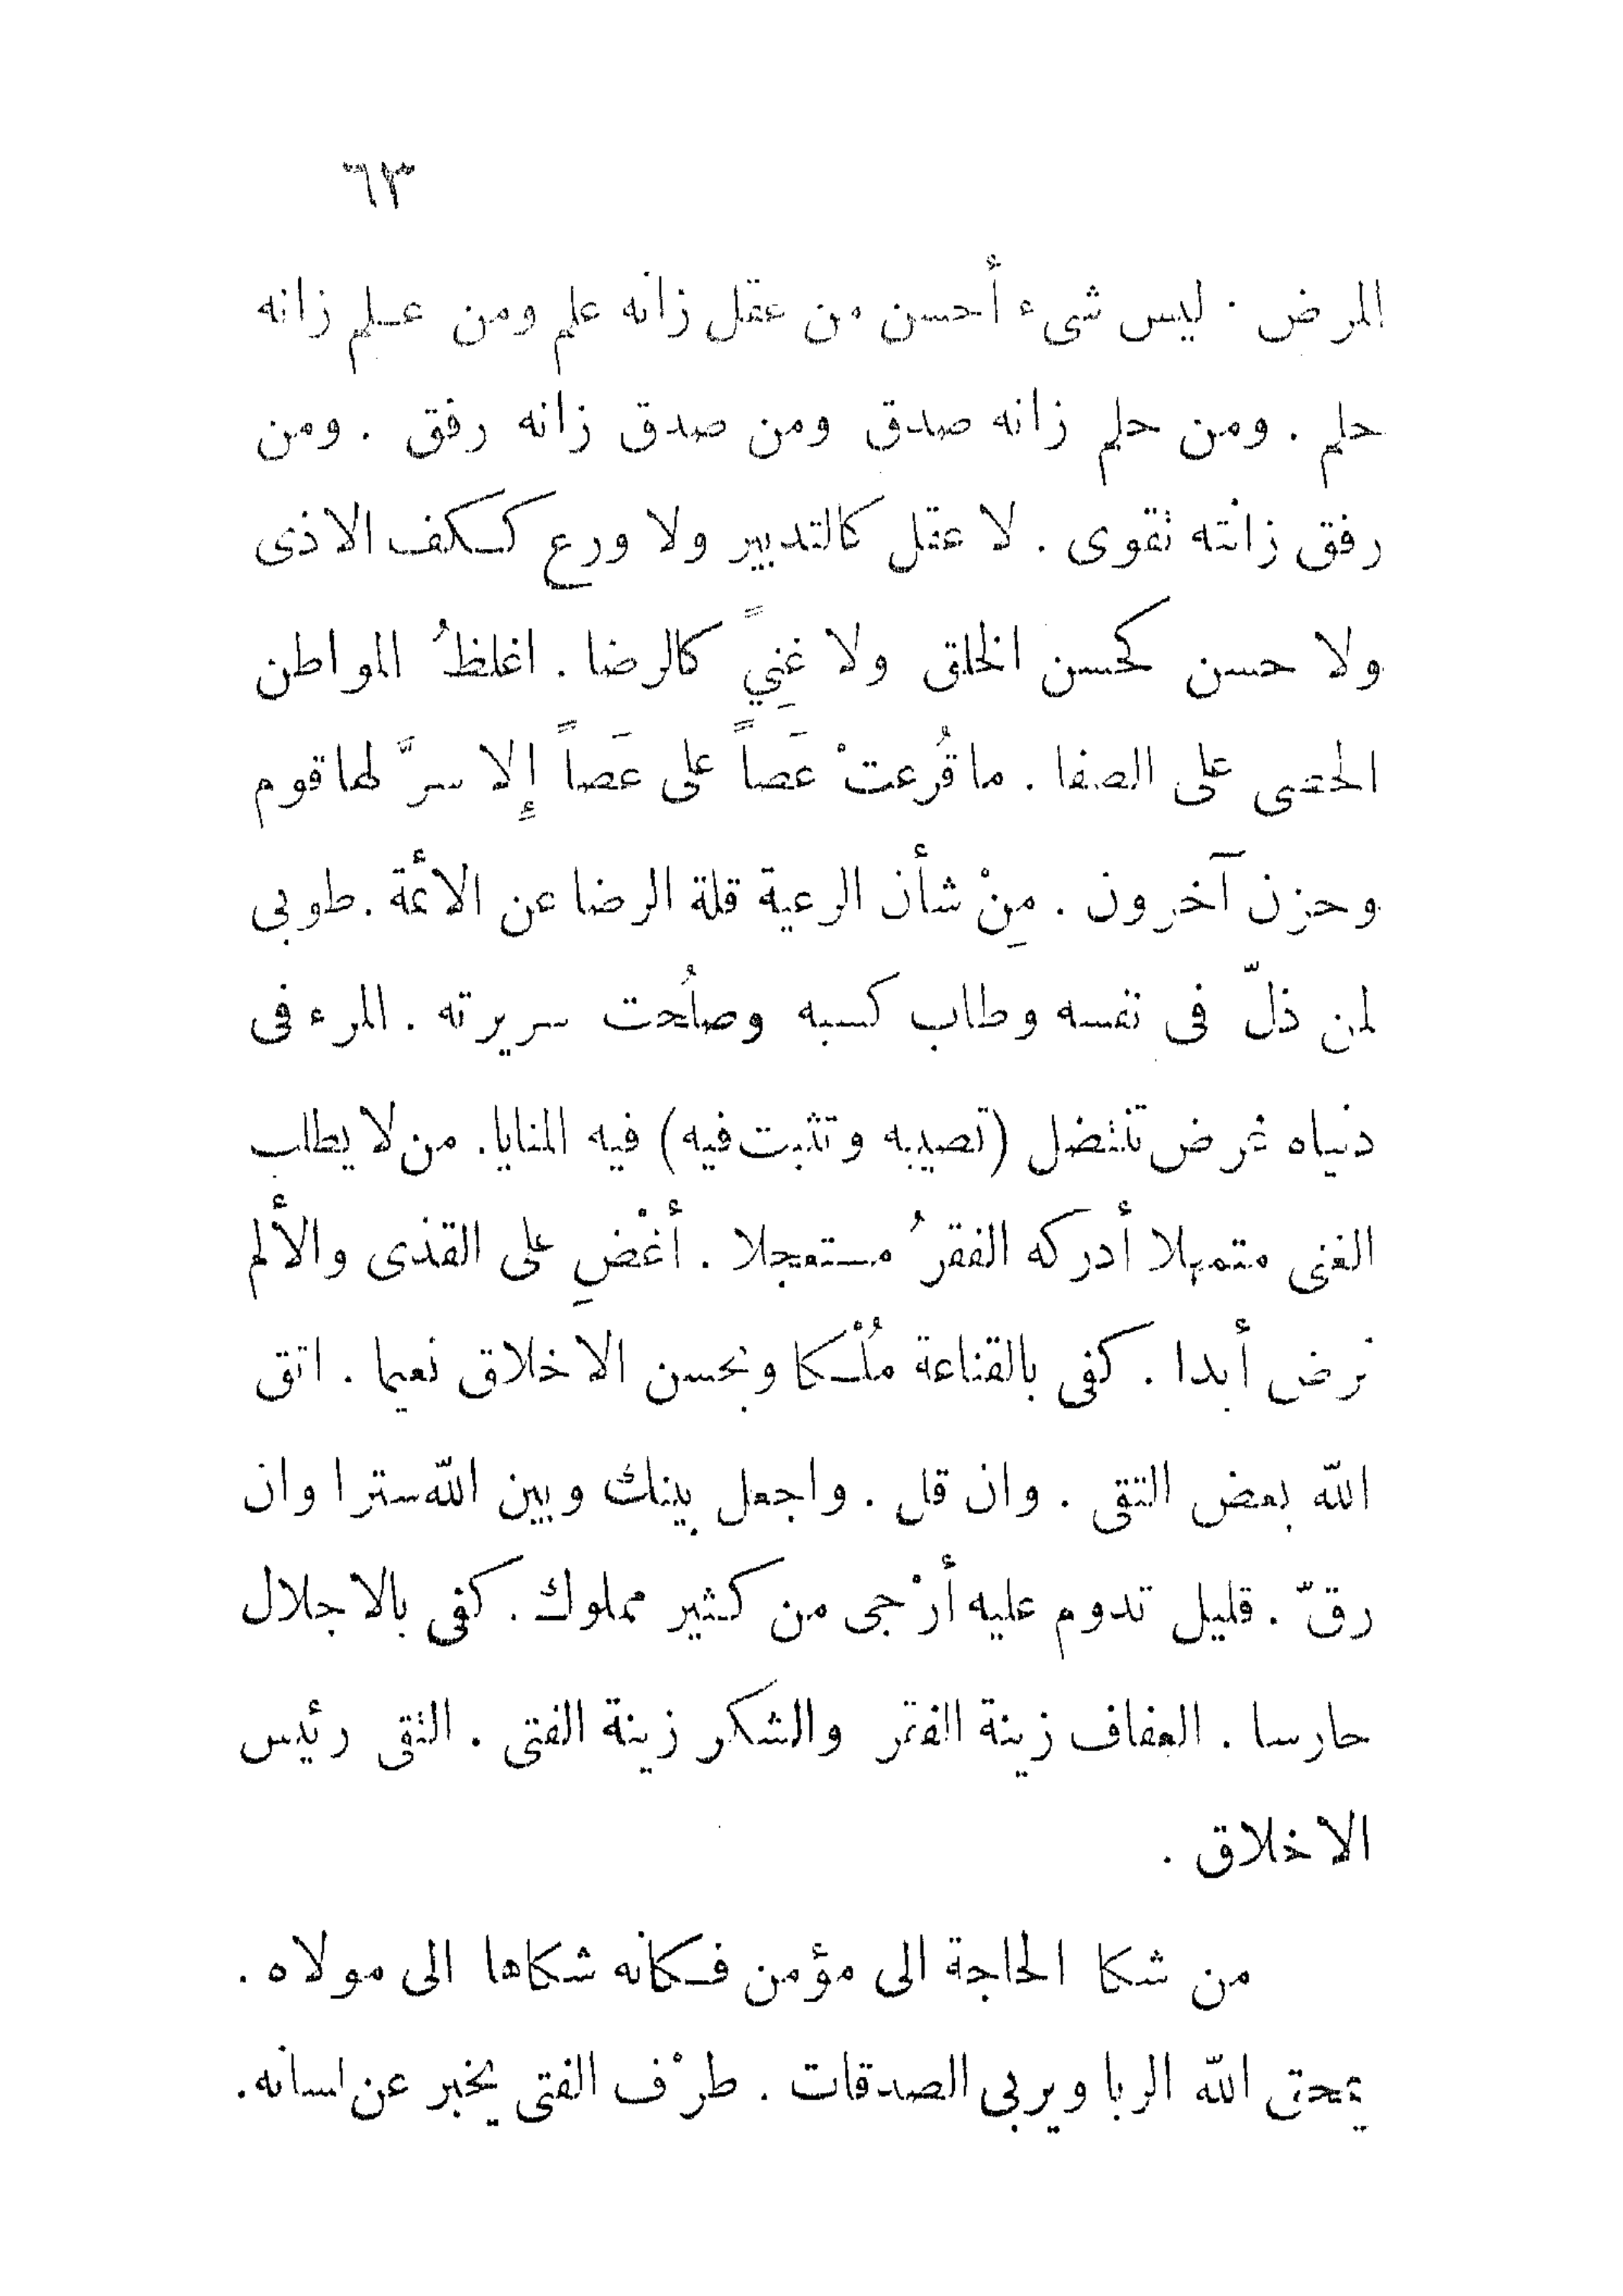 ٦٣
المرض . ليس شىء أحسن من عقل زانه علم ومن علم زانه
حلم . ومن حلم زانه صدق ومن صدق زانه رفق . ومن
رفق زانته تقوى . لا عقل كالتدبير ولا ورع ككف الاذى
ولا حسن كحسن الخلق ولا غِنيً كالرضا . اغلظُ المواطن
الحصى على الصفا . ما قُرعتْ عَصاً على عَصاً إلا سرَّ لها قوم
وحزن آخرون . مِنْ شأن الرعية قلة الرضا عن الأئمة . طوبى
لمن ذلّ فى نفسه وطاب كسبه وصلُحت سريرته . المرء فى
دنياه غرض تنتضل (تصيبه وتثبت فيه) فيه المنايا . من لا يطلب
الغنى متمهلا أدركه الفقرُ مستعجلا . أغْضِ على القذى والألم
ترض أبدا . كفى بالقناعة مُلْكا وبحسن الاخلاق نعيما . اتق
الله بعض التقى . وان قل . واجعل بينك وبين الله سترا وان
رقّ . قليل تدوم عليه أرْجى من كثير مملوك . كفى بالاجلال
حارسا . العفاف زينة الفقر والشكر زينة الفتى . التقى رئيس
الاخلاق .
من شكا الحاجة الى مؤمن فكانه شكاها الى مولاه .
يمحق الله الربا ويربى الصدقات . طرْف الفتى يخبر عن لسانه .